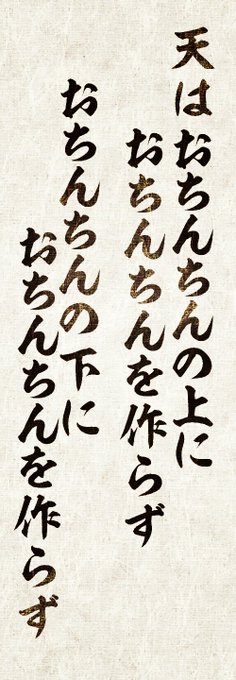 天はおちんちんの上に
おちんちんを作らず
おちんちんの下に
おちんちんを作らず